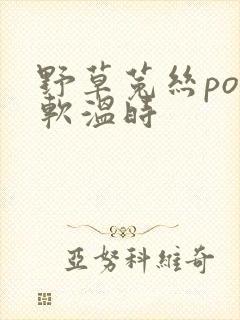 野草菟絲po
軟溫時
亞努科維奇